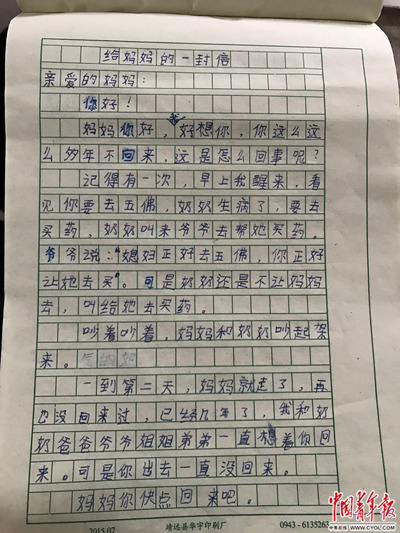 给妈妈的一封信
亲爱的妈妈：
你好！
妈妈你好，我好想你，你这么这
么多年不回来，这是怎么回事呢？
记得有一次，早上我醒来，看
见你要去五佛，奶奶生病了，要去
买药，奶奶叫来爷爷去帮她买药。
爷爷说："媳妇正好去五佛，你正好
让她去买"。可是奶奶还是不让妈妈
去，叫给她去买药。
吵着吵着，妈妈和奶奶吵起架
来。
一到第二天，妈妈就走了，再
也没回来过，已经几年了，我和奶
奶爸爸爷爷姐姐弟弟一直想着你回
来。可是你出去一直没回来。
妈妈你快点回来吧。
2015.07 靖远县华宇印刷厂 0943-6135263
中国青年报
中青在线 CYOL.COM